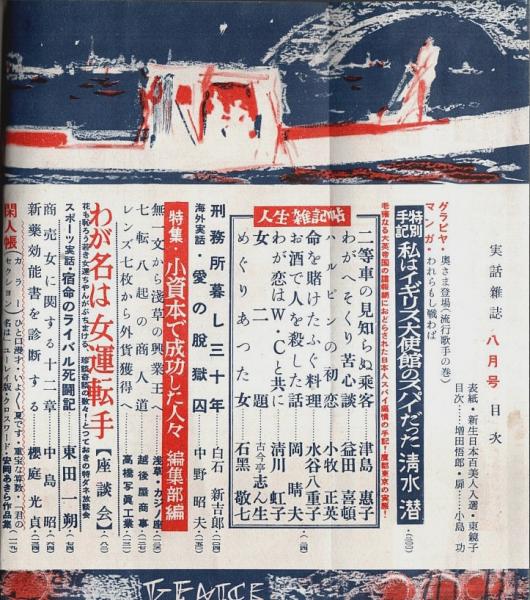 実話雑誌 八月号 目次
表紙・新生日本百美人入選・東鏡子
目次…増田悟郎・扉…小島功
グラビヤ・奥さま登場(流行歌手の巻)
マンガ・われらもし戦わば
特別手記 私はイギリス大使館のスパイだった 清水潜
老獪なる大英帝国の諜報網におどらされた日本人スパイ痛憤の手記!魔都東京の実態!
人生雑記帖
二等車の見知らぬ乗客 津島恵子
わがへそくり苦心談 益田喜頓
ハルピンの初恋 小牧正英
命を賭けたふぐ料理 水谷八重子
お酒で人を殺した話 岡晴夫
わが恋はW・Cと共に 清川虹子
女二題 古今亭志ん生
めぐりあった女 石黒敬七
刑務所暮し三十年 白石新吉郎
海外実話・愛の脱獄囚 中野昭夫
特集・小資本で成功した人々 編集部編
無一文から浅草の興業王へ 浅草・カジノ座
七転八起の商人道 越後屋商事
レンズ七枚から外貨獲得へ 高橋写真工業
わが名は女運転手【座談会】
花も恥らう若き女運ちゃんがぶちまける、珍談奇談の数々!とっておきの特ダネ放談会
スポーツ実話・宿命のライバル死闘記 東田一朔
商売女に関する十二章 中島昭
新薬効能書を診断する 桜庭光貞
閑人帳